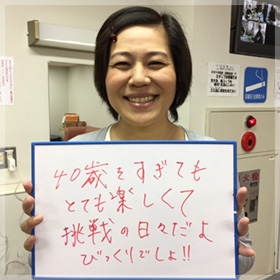 40歳をすぎても
とても楽しくて
挑戦の日々だよ
びっくりでしょ!!